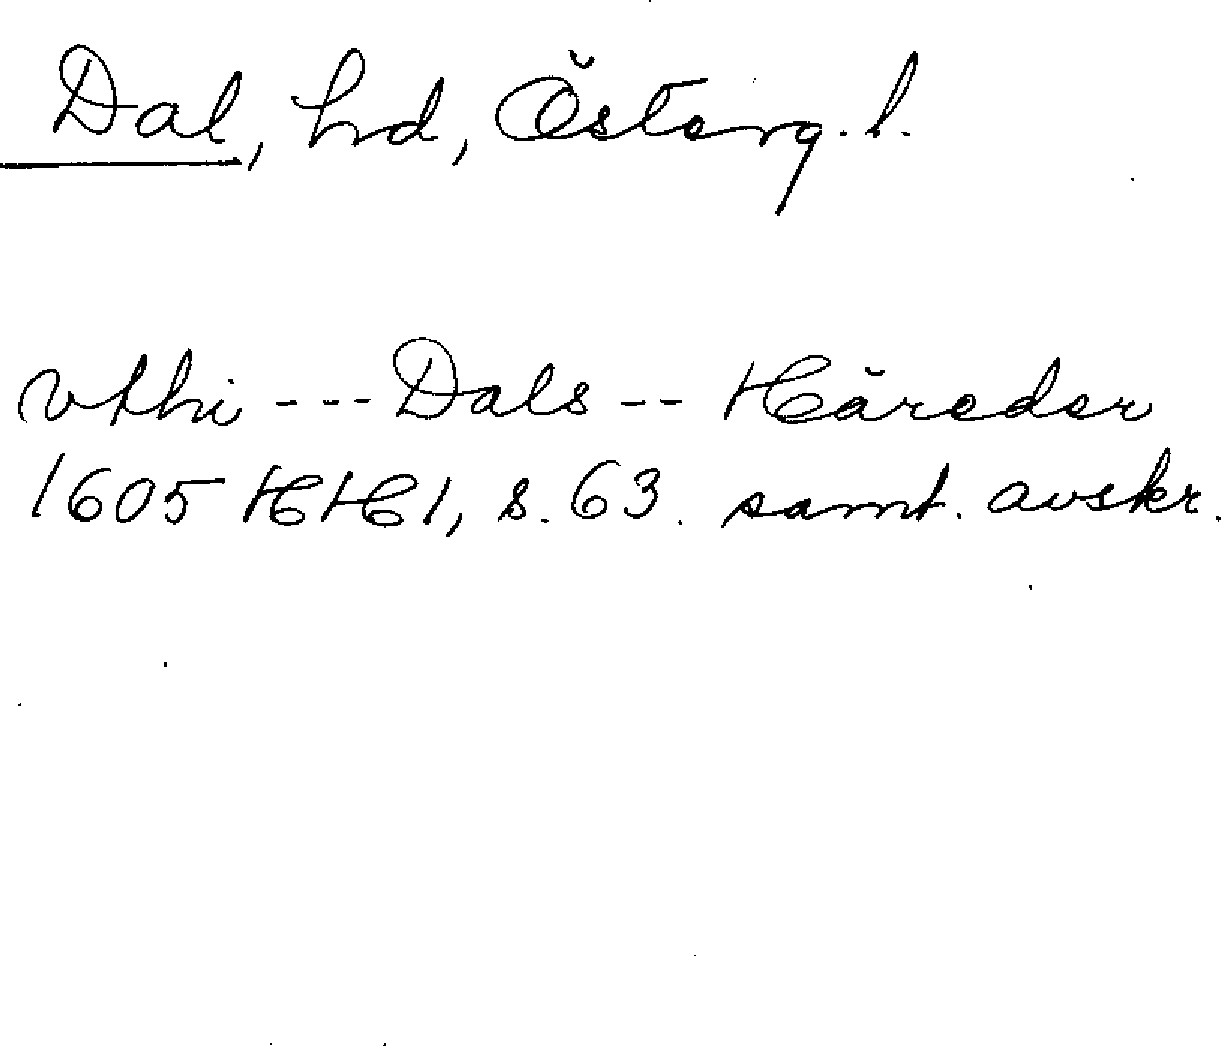 Dal, hd, Österg. l.
vthi --- Dals -- Häreder
1605 HH 1, s. 63. samt. avskr.